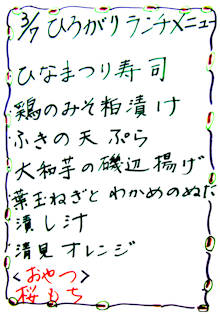 3/7 ひろがりランチメニュー
ひなまつり寿司
鶏のみそ粕漬け
ふきの天ぷら
大和芋の磯辺揚げ
葉玉ねぎとわかめのぬた
潰し汁
清見オレンジ
<おやつ>
桜もち